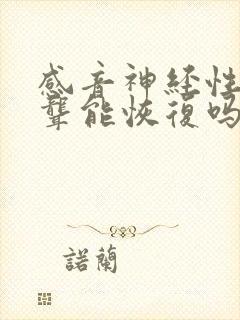 感音神經性
聾能恢復吗
諾蘭